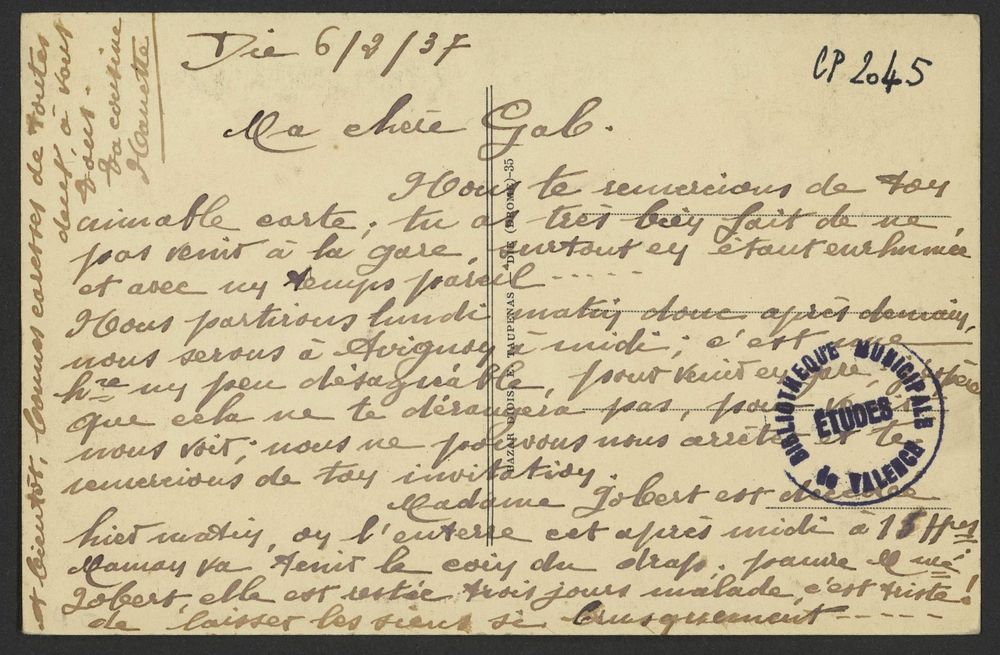 Die 6/2/37
CP 2045
Ma chère Gab.
Nous te remercions de ton
aimable carte; tu as très bien fait de ne
pas venir à la gare, surtout en étant enrhumée
et avec un temps pareil - - - - -
Nous partirons lundi matin donc, après demain,
nous serons à Avignon à midi; c'est une
hre un peu désagréable, pour venir en gare, j'espère
que cela ne te dérangera pas, pour
nous voir; nous ne pouvons nous arrêter et te
remercions de ton invitation.
Madame Jobert est décédée
hier matin, on l'enterre cet après midi à 15 Hres
Maman va tenir le coin du drap; pauvre Mme
Jobert, elle est restée trois jours malade, c'est triste!
de laisser les siens si brusquement - - - - -
et bientôt, bonnes caresses de toutes
deux à vous
tous.
Ta cousine
BAZAR DIOIS E. TAUPENAS — DIE (DROME)-35
BIBLIOTHEQUE MUNICIPALE
ÉTUDES
de VALENCE